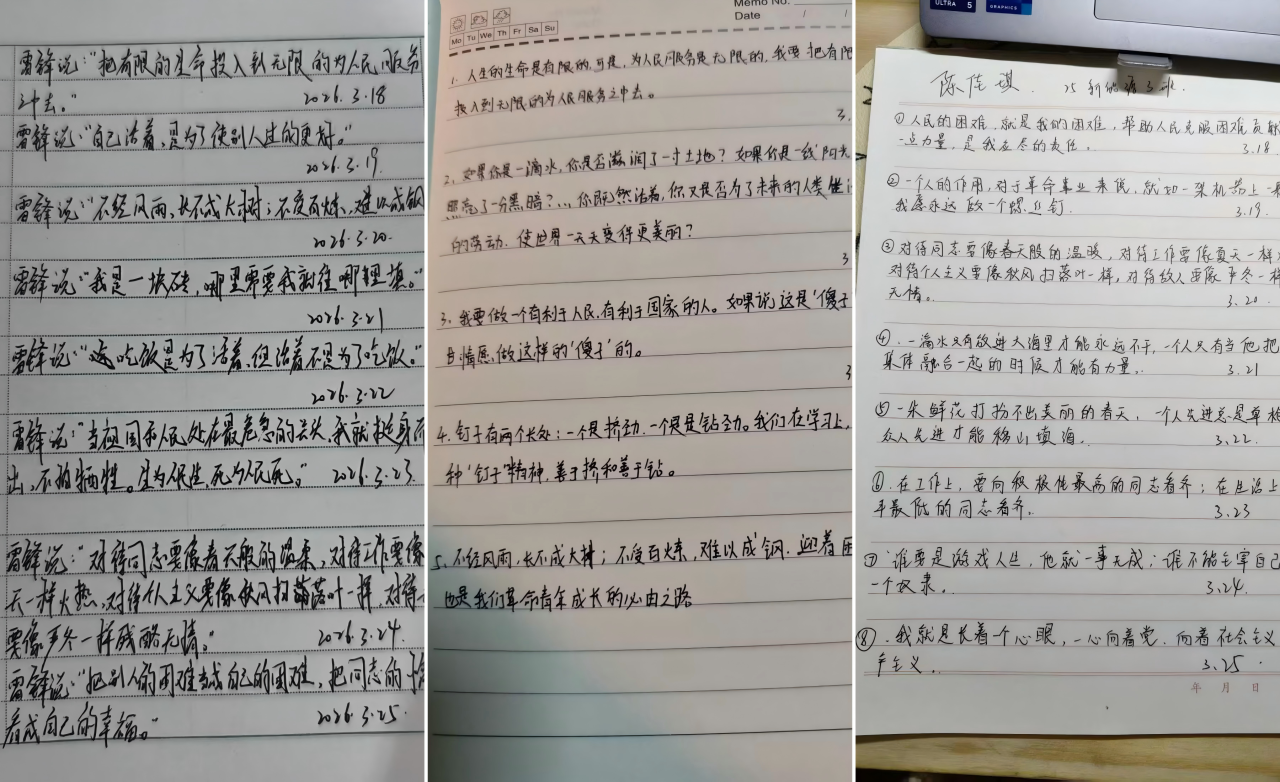 雷锋说:“把有限的生命投入到无限的为人民服务
之中去。” 2026.3.18
雷锋说:“自己活着,是为了使别人过的更好。”
2026.3.19
雷锋说:“不经风雨,长不成大树;不受百炼,难以成钢
2026.3.20.
雷锋说:“我是一块砖,哪里需要我就往哪里填。”
2026.3.21
雷锋说:“吃饭是为了活着,但活着不是为了吃饭。”
2026.3.22
雷锋说:“当祖国和人民处在最危急的关头,我就挺身而
出,不怕牺牲。生为人民生,死为人民死。” 2026.3.23
雷锋说:“对待同志要像春天般的温柔,对待工作要像
天一样火热,对待个人主义要像秋风扫落叶一样,对待
要像严冬一样残酷无情。” 2026.3.24
雷锋说:“把别人的困难当成自己的困难,把同志的
看成自己的幸福。” 2026.3.25
Memo No.
Date / /
Mo Tu We Th Fr Sa Su
1. 人生的生命是有限的,可是,为人民服务是无限的,我要把有限
投入到无限的为人民服务之中去。
3.
2. 如果你是一滴水,你是否滋润了一寸土地?如果你是一线阳光
照亮了一分黑暗?...你既然活着,你又是否为了未来的人类
的劳动.使世界一天天变得更美丽?
3
3. 我要做一个有利于人民,有利于国家的人。如果说这是‘傻子
甘情愿做这样的‘傻子’的。
3
4. 钉子有两个长处:一个是挤劲.一个是钻劲。我们在学习上,
种‘钉子’精神,善于挤和善于钻。
5. 不经风雨,长不成大树;不受百炼,难以成钢.迎着困
也是我们革命青年成长的必由之路
ULTRA 5
GRAPHICS
陈佳琪. 25新能源3班.
①人民的困难,就是我的困难,帮助人民克服困难贡献
一点力量,是我应尽的责任。 3.18
②一个人的作用,对于革命事业来说,就如一架机器上
我愿永远做一个螺丝钉. 3.19.
③对待同志要像春天般的温暖,对待工作要像夏天一样
对待个人主义要像秋风扫落叶一样,对待敌人要像严冬一样
无情。 3.20
④.一滴水只有放进大海里才能永远不干,一个人只有当他把
集体融合一起的时候才能有力量. 3.21
⑤一朵鲜花打扮不出美丽的春天,一个人先进总是单
众人先进才能移山填海. 3.22.
⑥.在工作上,要向积极性最高的同志看齐;在生活上
平最低的同志看齐. 3.23
⑦谁要是游戏人生,他就一事无成;谁不能主宰自己
一个奴隶. 3.24.
⑧.我就是长着一个心眼,一心向着党.向着社会主义
产主义. 3.25.
年 月 日